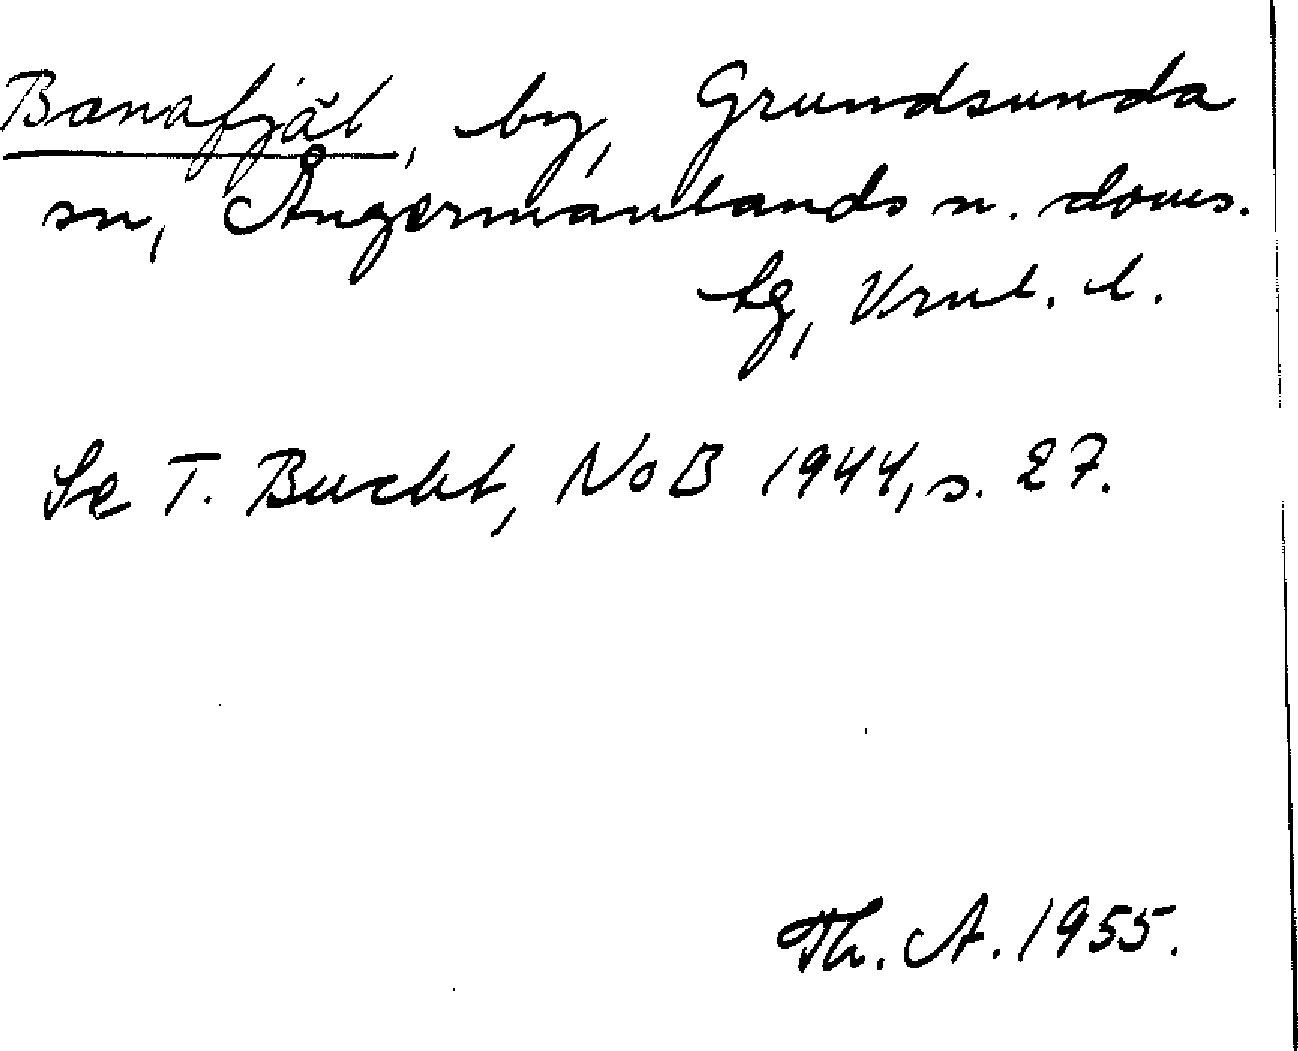 Banafjäl, by, Grundsunda
sn, Ångermanlands n. doms.
sg, Vrnl. l.
Se T. Bucht, NoB 1944, s. 27.
Th. A. 1955.